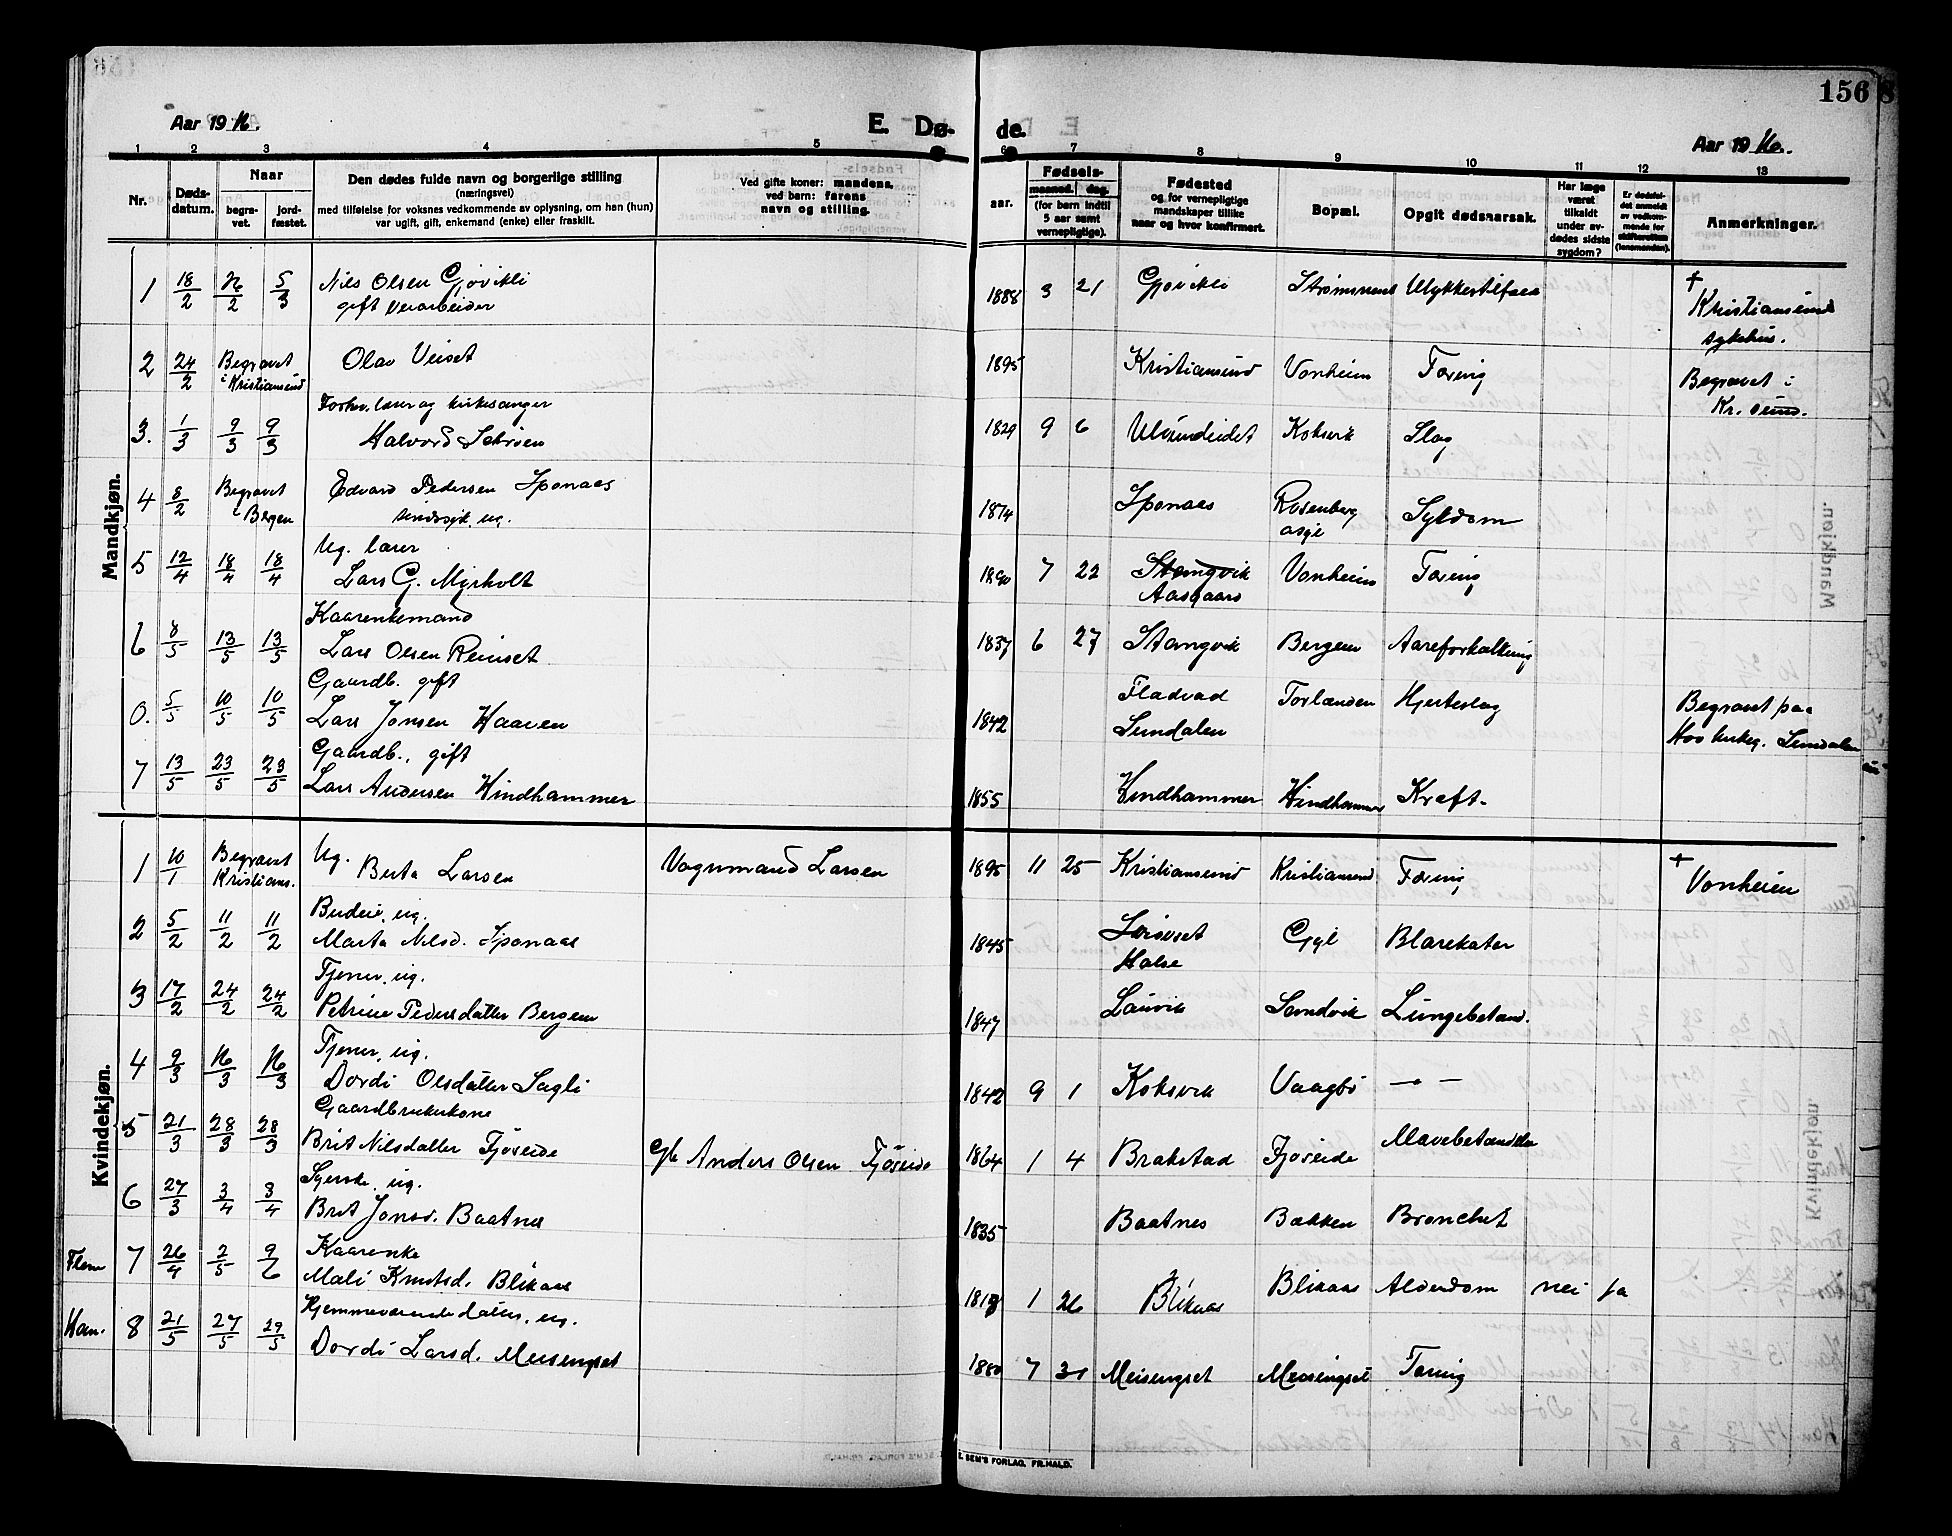 156
Aar 1916.
E. Dø-
de.
Aar 1916.
1 2 3 4 5 6 7 8 9 10 11 12 13
Nr.
Døds-
datum.
Naar
begra-
vet.
jord-
fæstet.
Den dødes fulde navn og borgerlige stilling
(næringsvei)
med tilføielse for voksnes vedkommende av oplysning, om han (hun)
var ugift, gift, enkemand (enke) eller fraskilt.
Ved gifte koner: mandens,
ved børn: farens
navn og stilling.
aar.
Fødsels-
maaned. dag.
(for børn indtil
5 aar samt
vernepligtige).
Fødested
og for vernepligtige
mandskaper tillike
naar og hvor konfirmert.
Bopæl.
Opgit dødsaarsak.
Har læge
været
tilkaldt
under av-
dødes sidste
sygdom?
Er dødsfal-
det anmeldt
av vedkom-
mende for
skifteretten
(lensmanden).
Anmerkninger.
Mandkjøn.
1 18/2 26/2 5/3 Nils Olsen Gjøvikli
gift veiarbeider
1888 3 21 Gjøvikli Strømmens Ulykkestilfælde
†
Kristiansund
sykehus.
2 24/2 Begravet
i Kristiansund
Olav Veiset
1895 Kristiansund Vonheim Tæring
Begravet i
Kr. sund.
3. 1/3 9/3 9/3 Forhv. lærer og kirkesanger
Halvord Schrøen
1829 9 6 Ulvundeidet Koksvik Slag
4 8/2 Begravet
i Bergen
Edvard Pedersen Sponaas
sindssyk, ug.
1874 Sponaas Rosenberg
asyl
Sykdom
5 12/4 18/4 18/4 Ug. lærer
Lars G. Myrholt
1890 7 22 Stangvik
Aasgaard
Vonheim Tæring
6 8/5 13/5 13/5 Kaarenkemand
Lars Olsen Reinset
1837 6 27 Stangvik Bergem Aareforkalkning
0. 5/5 10/5 10/5 Gaardb. gift
Lars Jonsen Haaven
1842 Fladvad
Sundalen
Torlanden Hjerteslag
Begravet paa
Hov kirkeg. Sundalen
7 13/5 23/5 23/5 Gaardb., gift
Lars Andersen Hindhammer
1855 Hindhammer Hindhammer Kræft.
Kvindekjøn.
1 10/1 Begravet
Kristians.
Ug.
Berta Larsen
Vognmand Larsen
1895 11 25 Kristiansund Kristiansund Tæring
†
Vonheim
2 5/2 11/2 11/2 Budeie, ug.
Marta Nilsd. Sponaas
1845
Halse
Blærekatar
3 17/2 24/2 24/2 Tjener, ug.
Petrine Pedersdatter Bergem
1847 Lauvik Sandvik Lungebetænd.
4 9/3 16/3 16/3 Tjener, ug.
Dordi Olsdatter Sagli
1842 9 1 Koksvik Vaagbø —„—
5 21/3 28/3 28/3 Gaardbrukerkone
Brit Nilsdatter Fjøseide
Gb Anders Olsen Fjøseide
1864 1 4 Brakstad Fjøseide Mavebetændelse
6 27/3 3/4 3/4 Syerske, ug.
Brit Jonsd. Baatnes
1835 Baatnes Bakken Bronchit
Flem 7 26/4 2/5 9/6 Kaarenke
Mali Knutsd. Blikaas
1818 1 26 Blikaas Blikaas Alderdom nei ja
Han. 8 21/5 27/5 29/5 Hjemmeværende datter, ug.
Dordi Larsd. Meisingset
1880 7 31 Meisingset Meisingset Tæring
E. SEM'S FORLAG, FR.HALD.